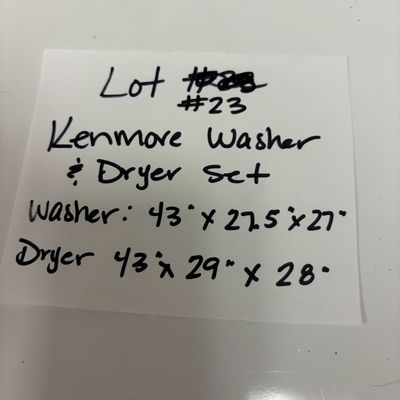 Lot
#23
Kenmore Washer
& Dryer Set
Washer: 43" x 27.5" x 27"
Dryer 43" x 29" x 28"